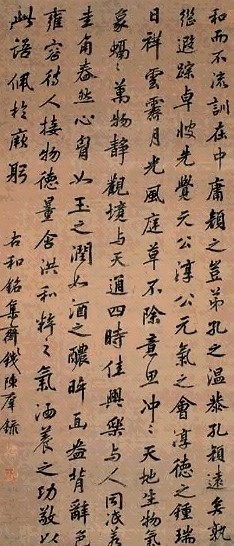 和而不流訓在中庸顏之豈弟孔之溫恭孔顏遠矣孰
繼遐蹤卓彼先覺元公淳公元氣之會淳德之鍾瑞
日祥雲霽月光風庭草不除意思冲〻天地生物氣
象融〻萬物靜觀境与天通四時佳興樂与人同泯若
圭角春然心胷如玉之潤如酒之醲睟面盎背辭色
雍容待人接物德量含洪和粹之氣涵養之功敬以
此語佩於厥躬
右和銘集齋錢陳羣録